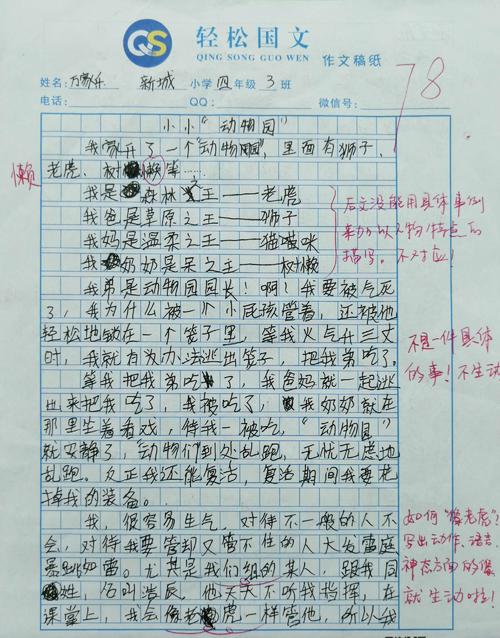 QS
轻松国文
QING SONG GUO WEN
作文稿纸
姓名: 新城 小学 四 年级 3 班
电话: QQ: 微信号:
78
小小“动物园”
我家开了一个“动物园”，里面有狮子、
懒
老虎、树懒等……
我是森林之王——老虎
我爸是草原之王——狮子
我妈是温柔之王——猫喵咪
我奶奶是呆之王——树懒
后文没能用具体事例
来加以人物特点的
描写。不对应！
我弟是动物园园长！啊！我要被气死
了，我为什么被一个小屁孩管着，还被他
轻松地锁在一个笼子里，等我火气升三丈
时，我就有办法逃出笼子，把我弟吃了。
不是一件具体
的事！不生动
等我把我弟吃了，我爸妈就一起逃
出来把我吃了，我被吃了，我奶奶就在
那里坐着看戏，待我一被吃，“动物园”
就安静了，动物们到处乱跑，无忧无虑地
乱跑。反正我还能复活，复活期间我要花
掉我的装备。
我，很容易生气，对待不一般的人不
会，对待我要管却又管不住的人大发雷庭
暴跳如雷。尤其是我们组的某人，跟我同
姓，名叫浩辰，他天天不听我指挥，在
课堂上，我会像老虎一样管他，所以我
如何“像老虎”？
写出动作、语言、
神态方面的像
就生动啦！